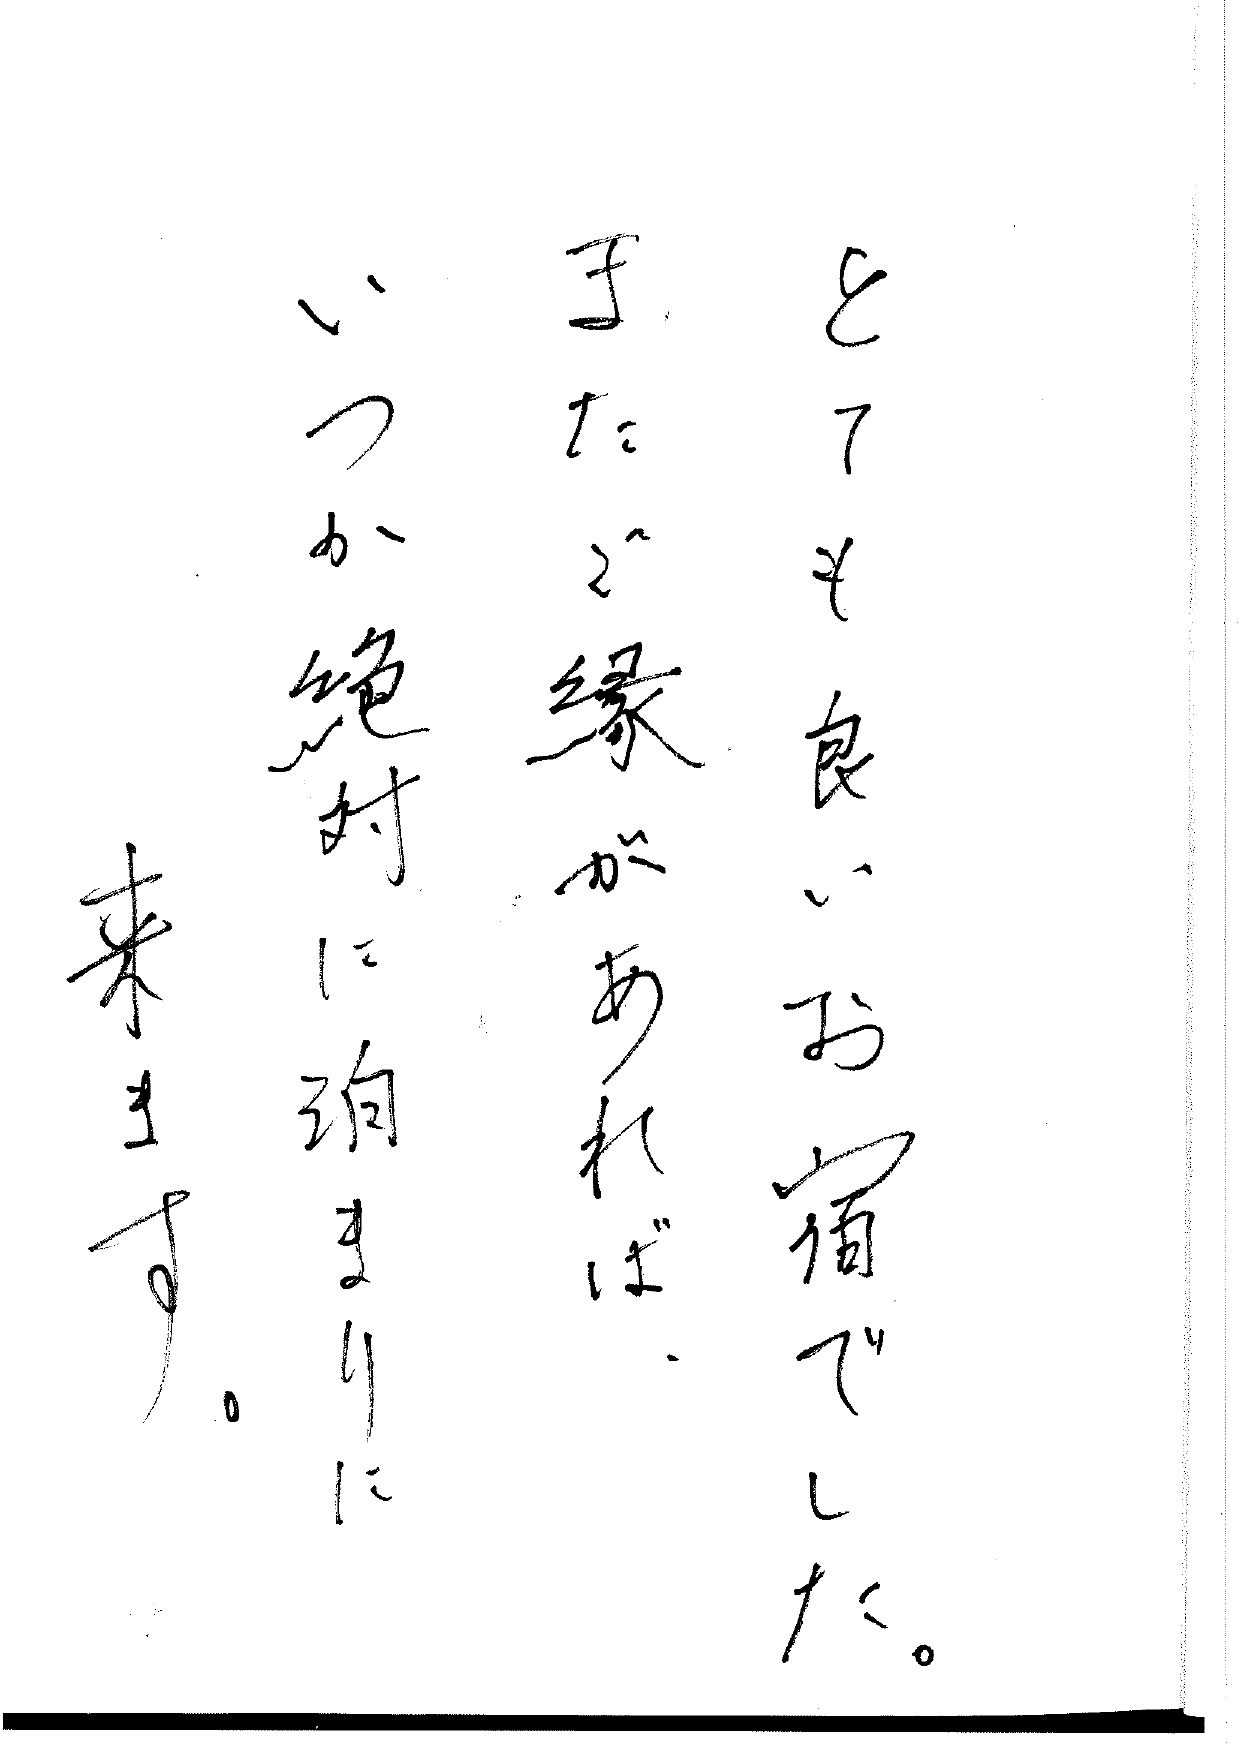 とても良いお宿でした。
またご縁があれば、
いつか絶対に泊まりに
来ます。